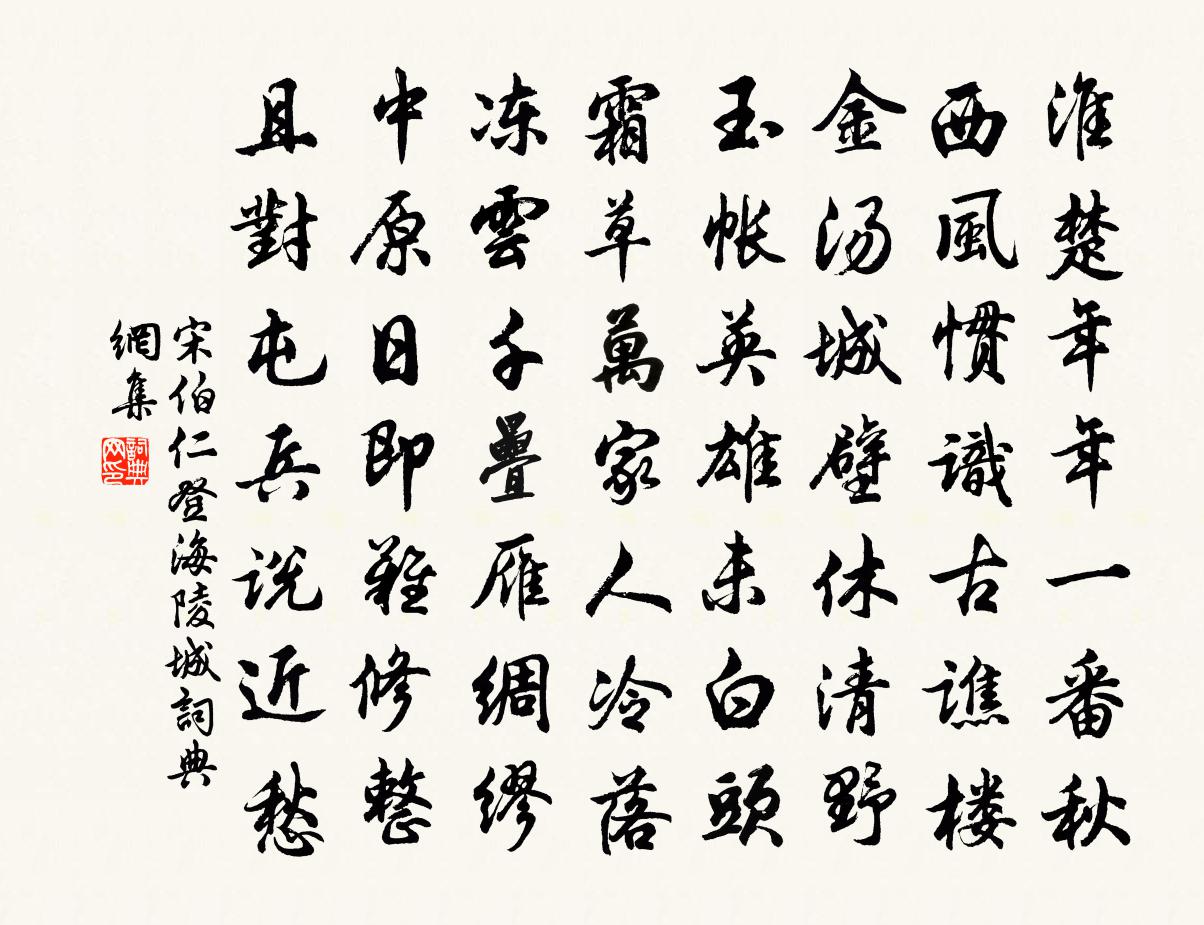 淮楚年年一番秋
西風惯識古譙楼
金汤城壁休清野
玉帐英雄未白頭
霜草萬家人冷落
冻雲千疊雁绸缪
中原日即難修整
且對屯兵说近愁
宋伯仁登海陵城詞典
網集
詞典
网印